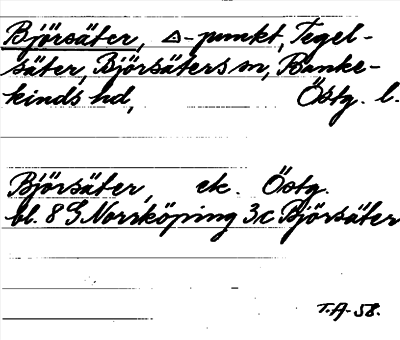 Björsäter, △-punkt, Tegel-
säter, Björsäters sn, Banke-
kinds hd, Östg. l.
Björsäter, ek. Östg.
bl. 8 G Norrköping 3c Björsäter
T.A-58.